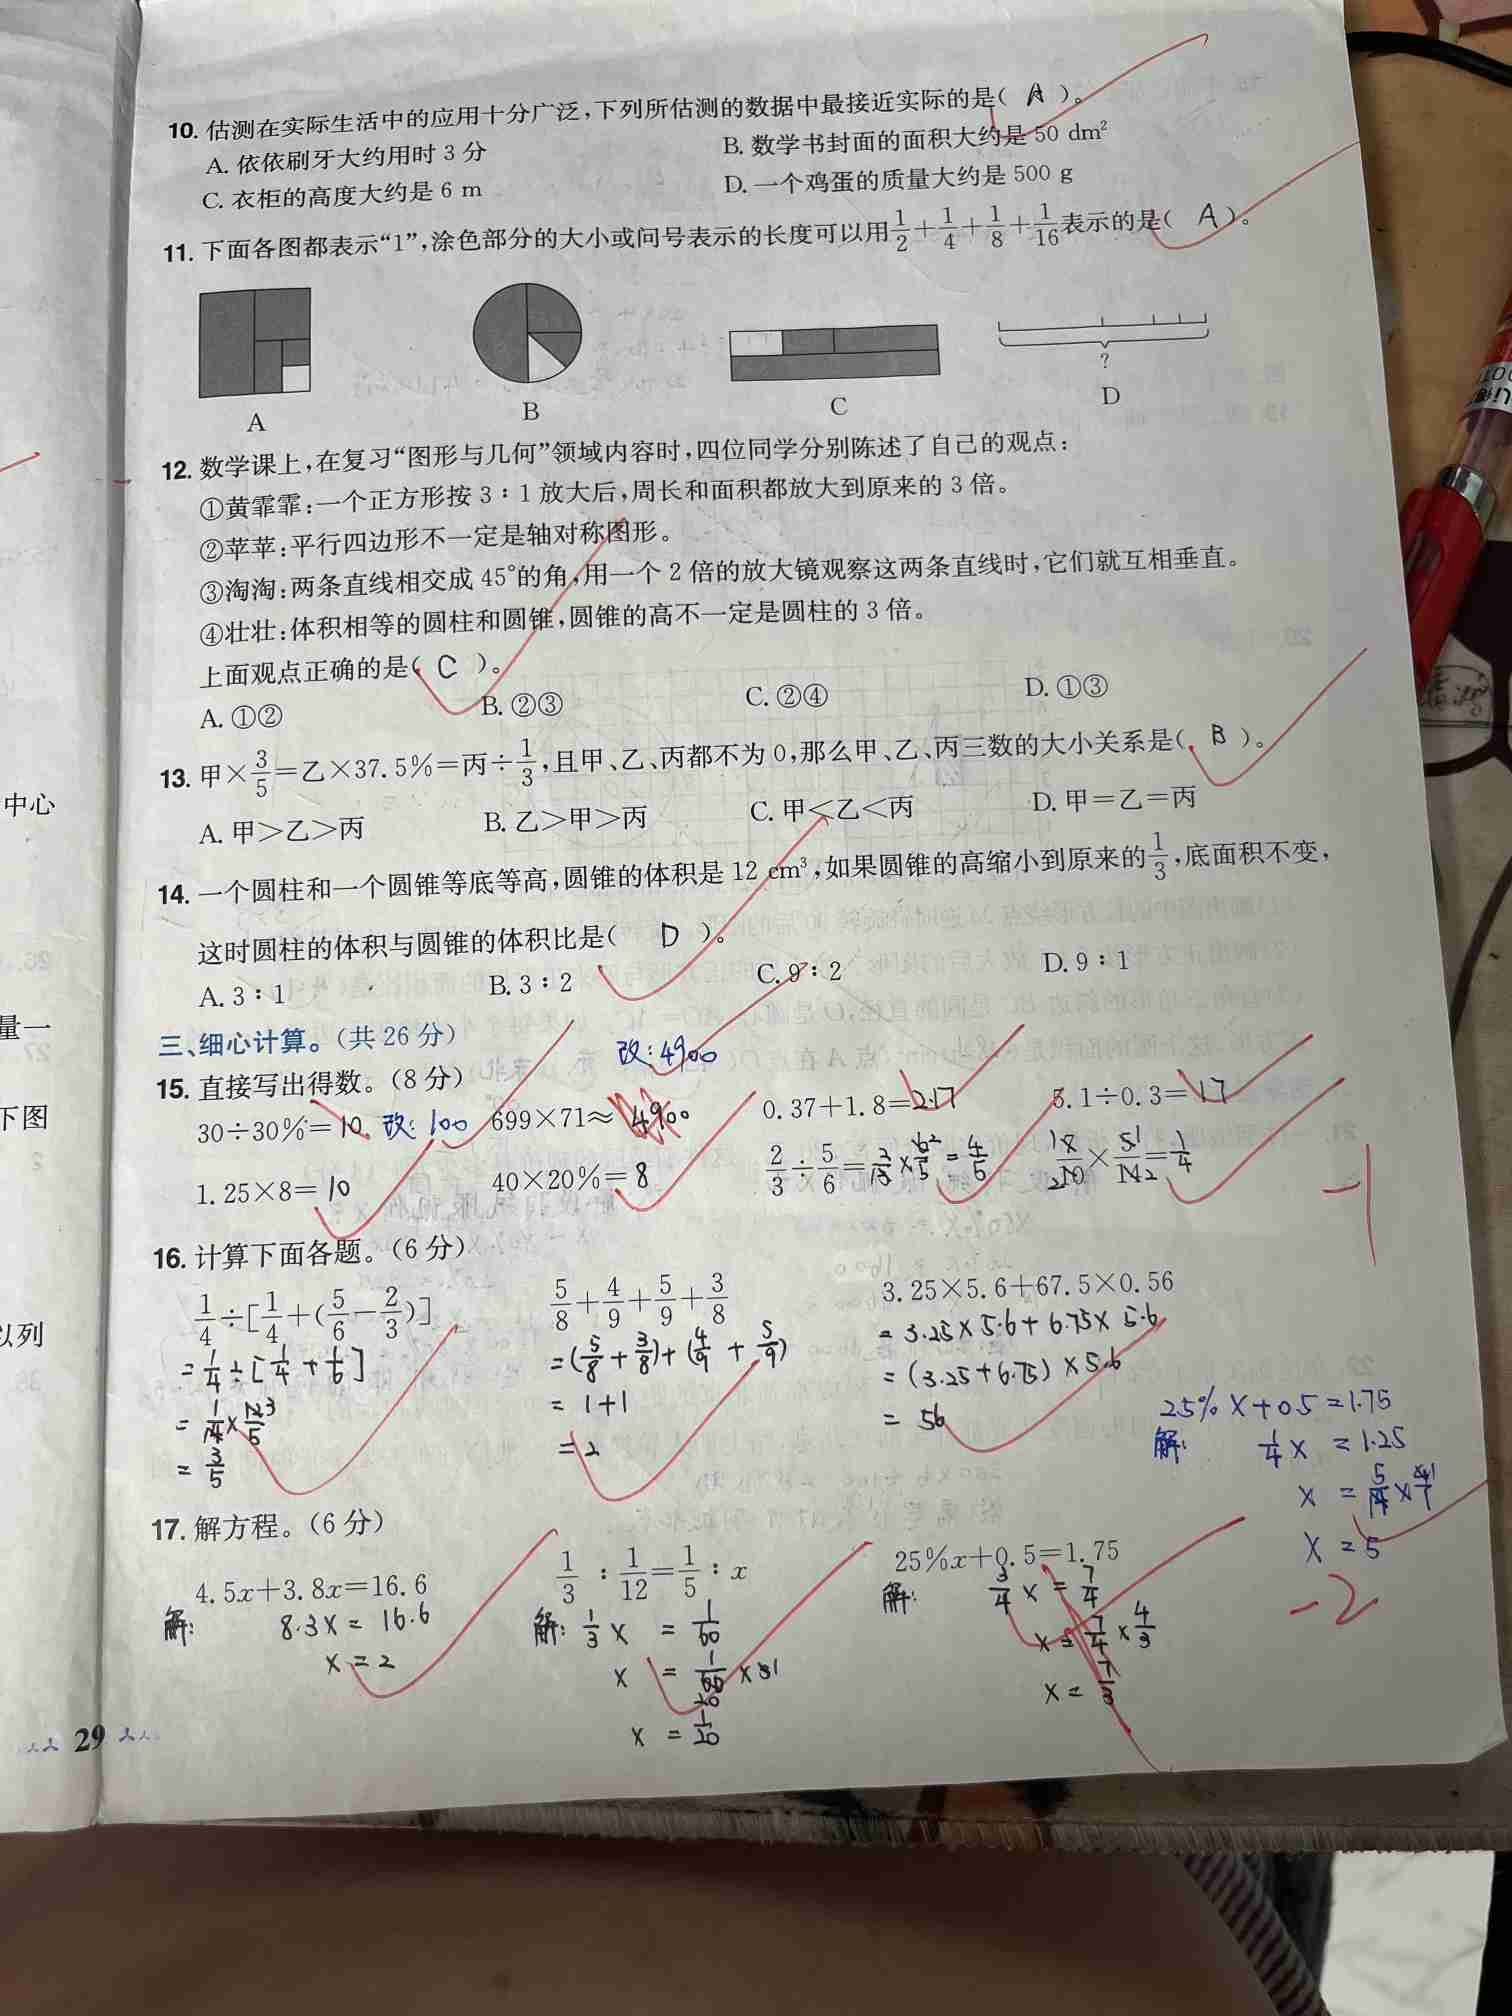 10. 估测在实际生活中的应用十分广泛,下列所估测的数据中最接近实际的是( A )。
A. 依依刷牙大约用时 3 分
B. 数学书封面的面积大约是 50 dm²
C. 衣柜的高度大约是 6 m
D. 一个鸡蛋的质量大约是 500 g
11. 下面各图都表示“1”,涂色部分的大小或问号表示的长度可以用1/2+1/4+1/8+1/16表示的是( A )。
?
A
B
C
D
12. 数学课上,在复习“图形与几何”领域内容时,四位同学分别陈述了自己的观点:
①黄霏霏:一个正方形按 3∶1 放大后,周长和面积都放大到原来的 3 倍。
②苹苹:平行四边形不一定是轴对称图形。
③淘淘:两条直线相交成 45°的角,用一个 2 倍的放大镜观察这两条直线时,它们就互相垂直。
④壮壮:体积相等的圆柱和圆锥,圆锥的高不一定是圆柱的 3 倍。
上面观点正确的是( C )。
A. ①②
B. ②③
C. ②④
D. ①③
13. 甲×3/5=乙×37.5%=丙÷1/3,且甲、乙、丙都不为 0,那么甲、乙、丙三数的大小关系是( B )。
A. 甲>乙>丙
B. 乙>甲>丙
C. 甲<乙<丙
D. 甲=乙=丙
14. 一个圆柱和一个圆锥等底等高,圆锥的体积是 12 cm³,如果圆锥的高缩小到原来的1/3,底面积不变,
这时圆柱的体积与圆锥的体积比是( D )。
A. 3∶1
B. 3∶2
C. 9∶2
D. 9∶1
三、细心计算。(共 26 分)
改:4900
15. 直接写出得数。(8 分)
30÷30%=10 改:100
699×71≈4900
0.37+1.8=2.17
5.1÷0.3=17
1.25×8=10
40×20%=8
2/3÷5/6=2/3×6/5=4/5
1/4
-1
16. 计算下面各题。(6 分)
1/4÷[1/4+(5/6-2/3)]
=1/4÷[1/4+1/6]
=1/4×12/5
=3/5
5/8+4/9+5/9+3/8
=(5/8+3/8)+(4/9+5/9)
=1+1
=2
3.25×5.6+67.5×0.56
=3.25×5.6+6.75×5.6
=(3.25+6.75)×5.6
=56
25%x+0.5=1.75
解: 1/4x=1.25
x=5/4×4/1
x=5
-2
17. 解方程。(6 分)
4.5x+3.8x=16.6
解: 8.3x=16.6
x=2
1/3∶1/12=1/5∶x
解: 1/3x=1/60
x=1/60×3
x=1/20
25%x+0.5=1.75
解: 3/4x=7/4
x=7/4×4/3
x=7/3
29
中心
量一
下图
以列